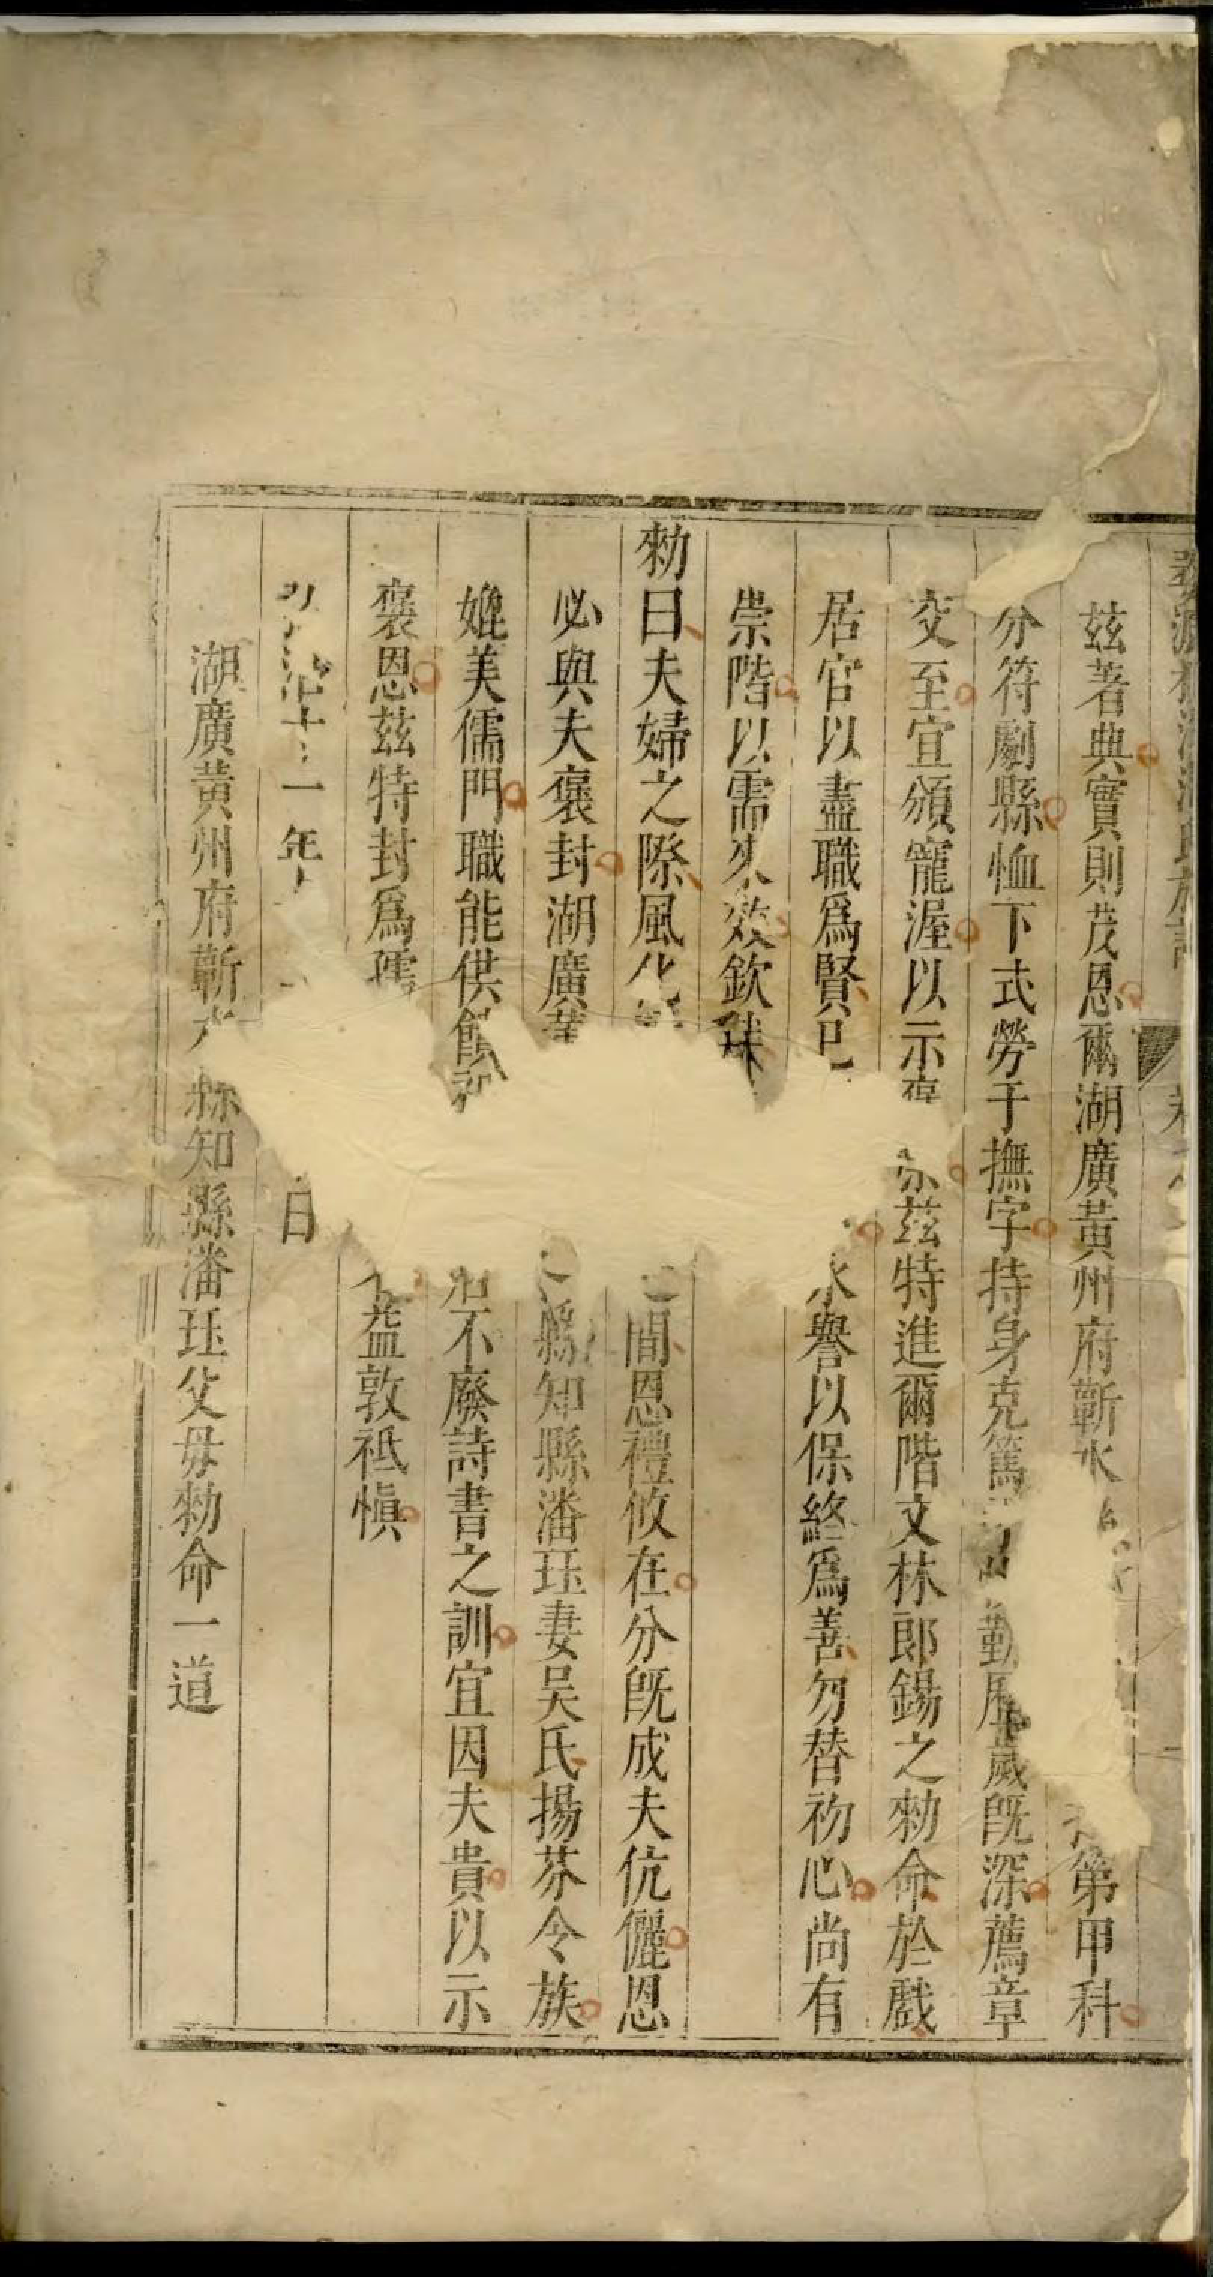 茲著典實則茂恩爾湖廣黃州府蘄水第甲科
分符劇縣恤下式勞于撫字持身克篤勤歷歲旣深薦章
交至宜頒寵渥以示茲特進爾階文林郎錫之勑命於戲
居官以盡職爲賢已永譽以保終爲善勿替初心尚有
崇階以需來效欽哉
勑曰夫婦之際風化間恩禮攸在分旣成夫伉儷恩
必與夫褒封湖廣黃縣知縣潘珏妻吴氏揚芬令族
媲美儒門職能供饋不廢詩書之訓宜因夫貴以示
褒恩茲特封爲孺益敦祗慎
治十一年日
湖廣黃州府蘄水縣知縣潘珏父母勑命一道